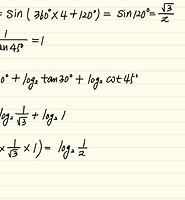 = sin (360° × 4 + 120°) = sin 120° = √3/2
1/tan 45° = 1
0° + log₂ tan 30° + log₂ cot 45°
log₂ 1/√3 + log₂ 1
× 1/√3 × 1) = log₂ 1/2